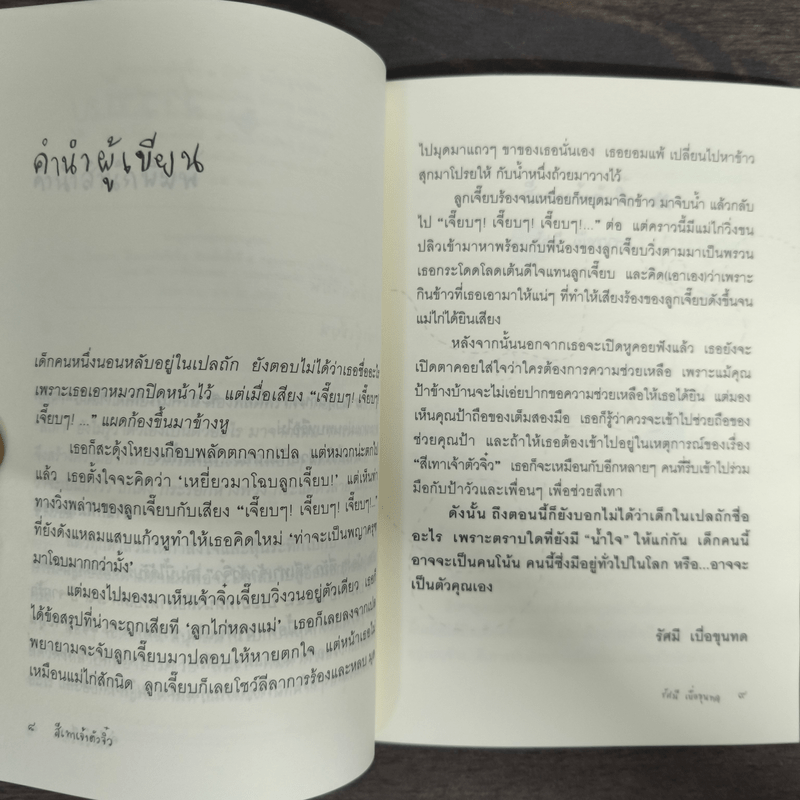 คำนำผู้เขียน
เด็กคนหนึ่งนอนหลับอยู่ในเปลถัก ยังตอบไม่ได้ว่าเธอชื่ออะไร
เพราะเธอเอาหมวกปิดหน้าไว้ แต่เมื่อเสียง “เจี๊ยบๆ! เจี๊ยบๆ!
เจี๊ยบๆ! ...” แผดก้องขึ้นมาข้างหู
เธอก็สะดุ้งโหยงเกือบพลัดตกจากเปล แต่หมวกน่ะตกไป
แล้ว เธอตั้งใจจะคิดว่า ‘เหยี่ยวมาโฉบลูกเจี๊ยบ!’ แต่เห็นท่า
ทางวิ่งพล่านของลูกเจี๊ยบกับเสียง “เจี๊ยบๆ! เจี๊ยบๆ! เจี๊ยบๆ!...”
ที่ยังดังแหลมแสบแก้วหูทำให้เธอคิดใหม่ ‘ท่าจะเป็นพญาครุฑ
มาโฉบมากกว่ามั้ง’
แต่มองไปมองมาเห็นเจ้าจิ๋วเจี๊ยบวิ่งวนอยู่ตัวเดียว เธอก็
ได้ข้อสรุปที่น่าจะถูกเสียที ‘ลูกไก่หลงแม่’ เธอก็เลยลงจากเปล
พยายามจะจับลูกเจี๊ยบมาปลอบให้หายตกใจ แต่หน้าเธอไม่
เหมือนแม่ไก่สักนิด ลูกเจี๊ยบก็เลยโชว์ลีลาการร้องและหลบ มุด
๘ สีเทาเจ้าตัวจิ๋ว
ไปมุดมาแถวๆ ขาของเธอนั่นเอง เธอยอมแพ้ เปลี่ยนไปหาข้าว
สุกมาโปรยให้ กับน้ำหนึ่งถ้วยมาวางไว้
ลูกเจี๊ยบร้องจนเหนื่อยก็หยุดมาจิกข้าว มาจิบน้ำ แล้วกลับ
ไป “เจี๊ยบๆ! เจี๊ยบๆ! เจี๊ยบๆ!...” ต่อ แต่คราวนี้มีแม่ไก่วิ่งชน
ปลิวเข้ามาหาพร้อมกับพี่น้องของลูกเจี๊ยบวิ่งตามมาเป็นพรวน
เธอกระโดดโลดเต้นดีใจแทนลูกเจี๊ยบ และคิด(เอาเอง)ว่าเพราะ
กินข้าวที่เธอเอามาให้แน่ๆ ที่ทำให้เสียงร้องของลูกเจี๊ยบดังขึ้นจน
แม่ไก่ได้ยินเสียง
หลังจากนั้นนอกจากเธอจะเปิดหูคอยฟังแล้ว เธอยังจะ
เปิดตาคอยใส่ใจว่าใครต้องการความช่วยเหลือ เพราะแม้คุณ
ป้าข้างบ้านจะไม่เอ่ยปากขอความช่วยเหลือให้เธอได้ยิน แต่มอง
เห็นคุณป้าถือของเต็มสองมือ เธอก็รู้ว่าควรจะเข้าไปช่วยถือของ
ช่วยคุณป้า และถ้าให้เธอต้องเข้าไปอยู่ในเหตุการณ์ของเรื่อง
“สีเทาเจ้าตัวจิ๋ว” เธอก็จะเหมือนกับอีกหลายๆ คนที่รีบเข้าไปร่วม
มือกับป้าวัวและเพื่อนๆ เพื่อช่วยสีเทา
ดังนั้น ถึงตอนนี้ก็ยังบอกไม่ได้ว่าเด็กในเปลถักชื่อ
อะไร เพราะตราบใดที่ยังมี “น้ำใจ” ให้แก่กัน เด็กคนนี้
อาจจะเป็นคนโน้น คนนี้ซึ่งมีอยู่ทั่วไปในโลก หรือ...อาจจะ
เป็นตัวคุณเอง
รัศมี เบื่อขุนทด
รัศมี เบื่อขุนทด ๙